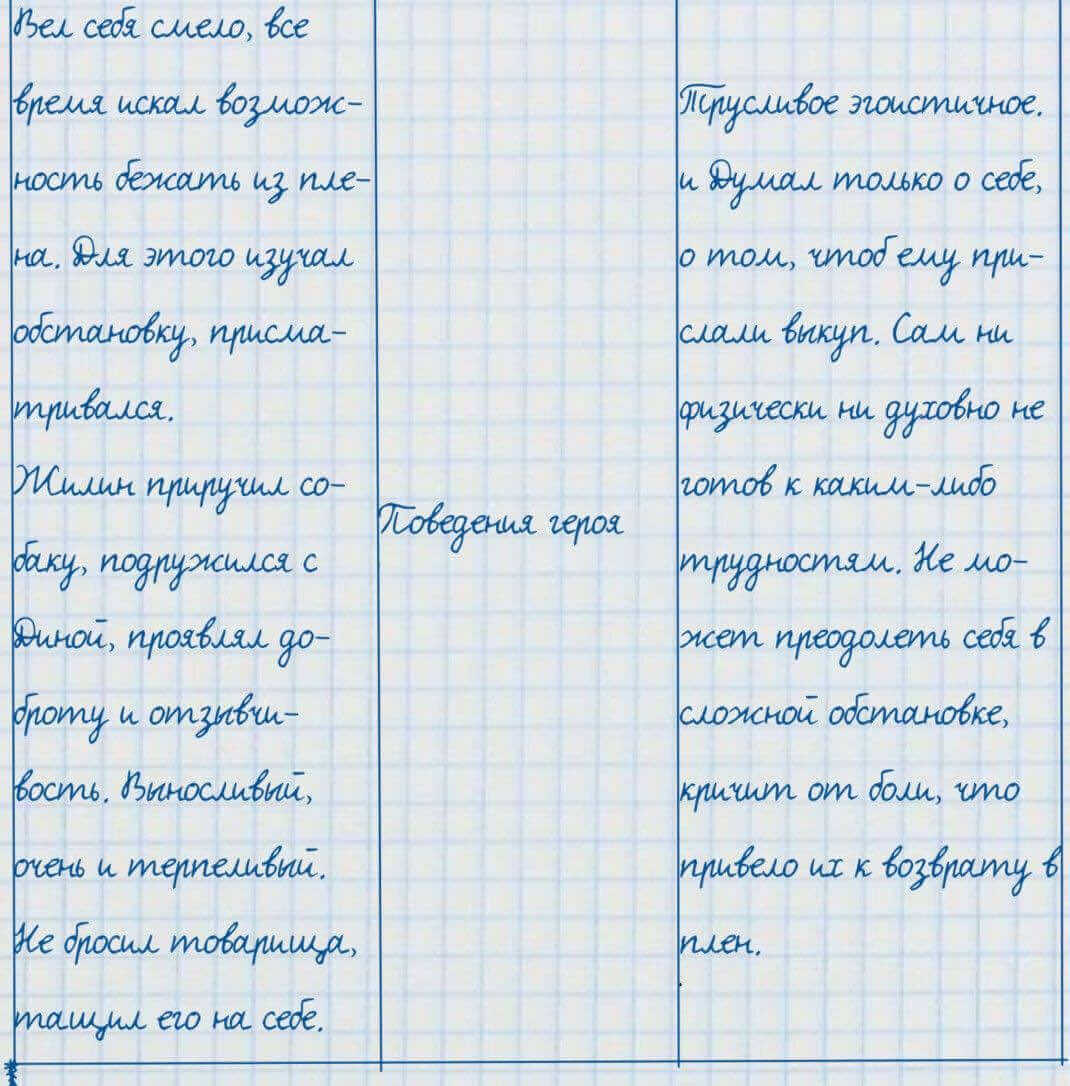 Вел себя смело, все
время искал возмож-
ность бежать из пле-
на. Для этого изучал
обстановку, присма-
тривался.
Жилин приручил со-
баку, подружился с
Диной, проявлял до-
броту и отзывчи-
вость. Выносливый,
очень и терпеливый.
Не бросил товарища,
тащил его на себе.
Поведения героя
Трусливое эгоистичное.
и Думал только о себе,
о том, чтоб ему при-
слали выкуп. Сам ни
физически ни духовно не
готов к каким-либо
трудностям. Не мо-
жет преодолеть себя в
сложной обстановке,
кричит от боли, что
привело их к возврату в
плен.